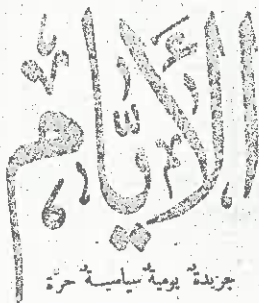 الأيام
جريدة يومية سياسية حرة